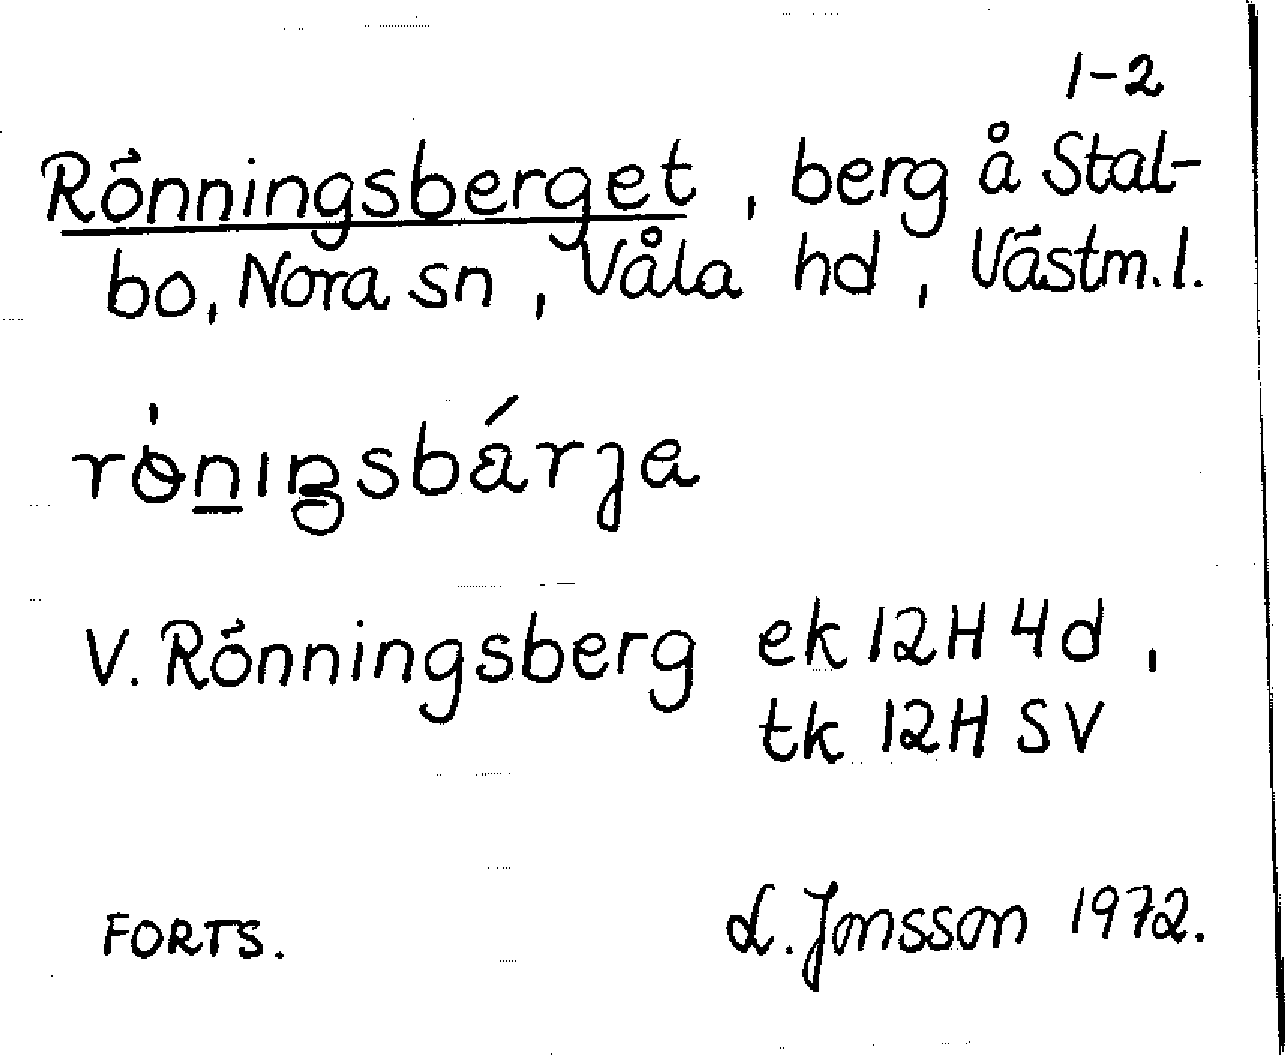 1-2
Rönningsberget, berg å Stal-
bo, Nora sn, Våla hd, Västm.l.
rö̀nıŋsbárja
V. Rönningsberg ek 12H 4d,
tk 12H SV
FORTS. L. Jonsson 1972.